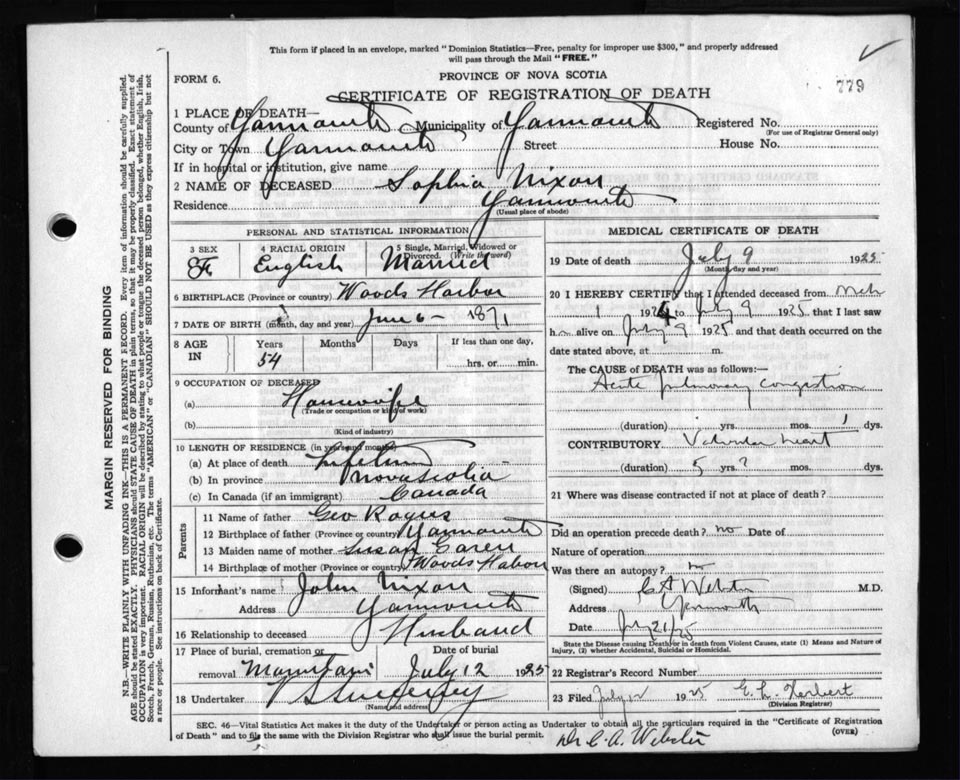 This form if placed in an envelope, marked "Dominion Statistics—Free, penalty for improper use $300," and properly addressed
will pass through the Mail "FREE."
779
FORM 6.
PROVINCE OF NOVA SCOTIA
CERTIFICATE OF REGISTRATION OF DEATH
1 PLACE OF DEATH—
County of Yarmouth Municipality of Yarmouth Registered No.
(For use of Registrar General only)
City or Town Yarmouth Street House No.
If in hospital or institution, give name
2 NAME OF DECEASED Sophia Nixon
Residence Yarmouth
(Usual place of abode)
PERSONAL AND STATISTICAL INFORMATION
3 SEX F
4 RACIAL ORIGIN English
5 Single, Married, Widowed or Divorced. (Write the word) Married
6 BIRTHPLACE (Province or country) Woods Harbor
7 DATE OF BIRTH (month, day and year) June 6 - 1871
8 AGE IN Years Months Days If less than one day,
54 hrs. or min.
9 OCCUPATION OF DECEASED
(a) Housewife
(Trade or occupation or kind of work)
(b)
(Kind of industry)
10 LENGTH OF RESIDENCE (in years and months)
(a) At place of death Lifetime
(b) In province Nova Scotia
(c) In Canada (if an immigrant) Canada
Parents
11 Name of father Geo Rogers
12 Birthplace of father (Province or country) Yarmouth
13 Maiden name of mother Susan
14 Birthplace of mother (Province or country) Woods Habor
15 Informant's name John Nixon
Address Yarmouth
16 Relationship to deceased Husband
17 Place of burial, cremation or removal Mountain
Date of burial July 12 1925
18 Undertaker
(Name and address)
MEDICAL CERTIFICATE OF DEATH
19 Date of death July 9 1925
(Month, day and year)
20 I HEREBY CERTIFY that I attended deceased from
1 1924 to July 9 1925 that I last saw
h alive on July 9 1925 and that death occurred on the
date stated above, at m.
The CAUSE of DEATH was as follows:—
Acute pulmonary congestion
(duration) yrs. mos. 1 dys.
CONTRIBUTORY Valvular heart
(duration) 5 yrs. ? mos. dys.
21 Where was disease contracted if not at place of death?
Did an operation precede death? no Date of
Nature of operation
Was there an autopsy? no
(Signed) C A Webster M.D.
Address Yarmouth
Date July 21/25
State the Disease causing Death or in death from Violent Causes, state (1) Means and Nature of
Injury, (2) whether Accidental, Suicidal or Homicidal.
22 Registrar's Record Number
23 Filed July 12 1925 E. L. Herbert
(Division Registrar)
SEC. 46—Vital Statistics Act makes it the duty of the Undertaker or person acting as Undertaker to obtain all the particulars required in the "Certificate of Registration
of Death" and to file the same with the Division Registrar who shall issue the burial permit.
(OVER)
Dr C. A. Webster
MARGIN RESERVED FOR BINDING
N.B.—WRITE PLAINLY WITH UNFADING INK—THIS IS A PERMANENT RECORD. Every item of information should be carefully supplied.
AGE should be stated EXACTLY. PHYSICIANS should STATE CAUSE OF DEATH in plain terms, so that it may be properly classified. Exact statement of
OCCUPATION is very important. RACIAL ORIGIN will be described by stating to what people or tongue the deceased person belonged, whether English, Irish,
Scotch, French, German, Russian, Ruthenian, etc. The terms "AMERICAN" or "CANADIAN" SHOULD NOT BE USED as they express citizenship but not
a race or people. See instructions on back of Certificate.